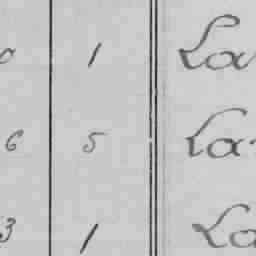 0 1 La
6 5 La
3 1 La